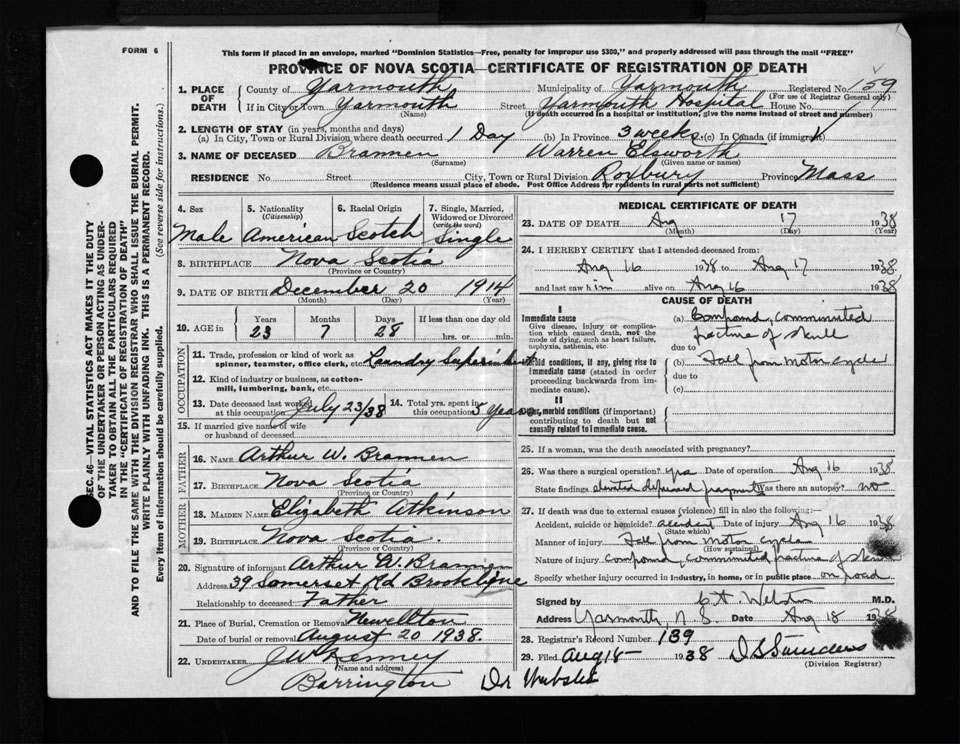 FORM 6
This form if placed in an envelope, marked "Dominion Statistics—Free, penalty for improper use $300," and properly addressed will pass through the mail "FREE"
PROVINCE OF NOVA SCOTIA—CERTIFICATE OF REGISTRATION OF DEATH
1. PLACE OF DEATH
County of Yarmouth Municipality of Yarmouth Registered No. 159
(For use of Registrar General only)
If in City or Town Yarmouth Street Yarmouth Hospital House No.
(Name) (If death occurred in a hospital or institution, give the name instead of street and number)
2. LENGTH OF STAY (in years, months and days)
(a) In City, Town or Rural Division where death occurred 1 Day (b) In Province 3 weeks (c) In Canada (if immigrant)
3. NAME OF DECEASED Brannen Warren Elsworth
(Surname) (Given name or names)
RESIDENCE No. Street City, Town or Rural Division Roxbury Province Mass
(Residence means usual place of abode. Post Office Address for residents in rural parts not sufficient)
4. Sex Male
5. Nationality (Citizenship) American
6. Racial Origin Scotch
7. Single, Married, Widowed or Divorced (write the word) Single
8. BIRTHPLACE Nova Scotia
(Province or Country)
9. DATE OF BIRTH December 20 1914
(Month) (Day) (Year)
10. AGE in Years Months Days If less than one day old
23 7 28 hrs. or min.
OCCUPATION
11. Trade, profession or kind of work as spinner, teamster, office clerk, etc. Laundry
12. Kind of industry or business, as cotton-mill, lumbering, bank, etc.
13. Date deceased last worked at this occupation July 23/38
14. Total yrs. spent in this occupation 5 Years
15. If married give name of wife or husband of deceased
FATHER
16. NAME Arthur W. Brannen
17. BIRTHPLACE Nova Scotia
(Province or Country)
MOTHER
18. MAIDEN NAME Elizabeth Atkinson
19. BIRTHPLACE Nova Scotia.
(Province or Country)
20. Signature of informant Arthur W. Brannen
Address 39 Somerset Rd Brookline
Relationship to deceased Father
21. Place of Burial, Cremation or Removal Newellton
Date of burial or removal August 20 1938.
22. UNDERTAKER J W Kenney
(Name and address)
Barrington
Dr Webster
MEDICAL CERTIFICATE OF DEATH
23. DATE OF DEATH Aug 17 1938
(Month) (Day) (Year)
24. I HEREBY CERTIFY that I attended deceased from:
Aug 16 1938 to Aug 17 1938,
and last saw him alive on Aug 16 1938,
CAUSE OF DEATH
Immediate cause
Give disease, injury or complication which caused death, not the mode of dying, such as heart failure, asphyxia, asthenia, etc.
(a) Compound, comminuted fracture of skull
due to
Morbid conditions, if any, giving rise to immediate cause (stated in order proceeding backwards from immediate cause).
(b) Fall from motor cycle
due to
(c)
II
Other morbid conditions (if important) contributing to death but not causally related to immediate cause.
25. If a woman, was the death associated with pregnancy?
26. Was there a surgical operation? yes Date of operation Aug 16 1938
State findings elevated depressed fragments Was there an autopsy? no
27. If death was due to external causes (violence) fill in also the following:—
Accident, suicide or homicide? accident Date of injury Aug 16 1938
(State which)
Manner of injury Fall from motor cycle
(How sustained)
Nature of injury compound, comminuted fracture of skull
Specify whether injury occurred in industry, in home, or in public place on road
Signed by M.D.
Address Yarmouth, N.S. Date Aug 18 1938
28. Registrar's Record Number 139
29. Filed Aug 18 1938
(Division Registrar)
SEC. 46—VITAL STATISTICS ACT MAKES IT THE DUTY
OF THE UNDERTAKER OR PERSON ACTING AS UNDER-
TAKER TO OBTAIN ALL THE PARTICULARS REQUIRED
IN THE "CERTIFICATE OF REGISTRATION OF DEATH"
AND TO FILE THE SAME WITH THE DIVISION REGISTRAR WHO SHALL ISSUE THE BURIAL PERMIT.
WRITE PLAINLY WITH UNFADING INK. THIS IS A PERMANENT RECORD.
Every item of information should be carefully supplied. (See reverse side for instructions.)